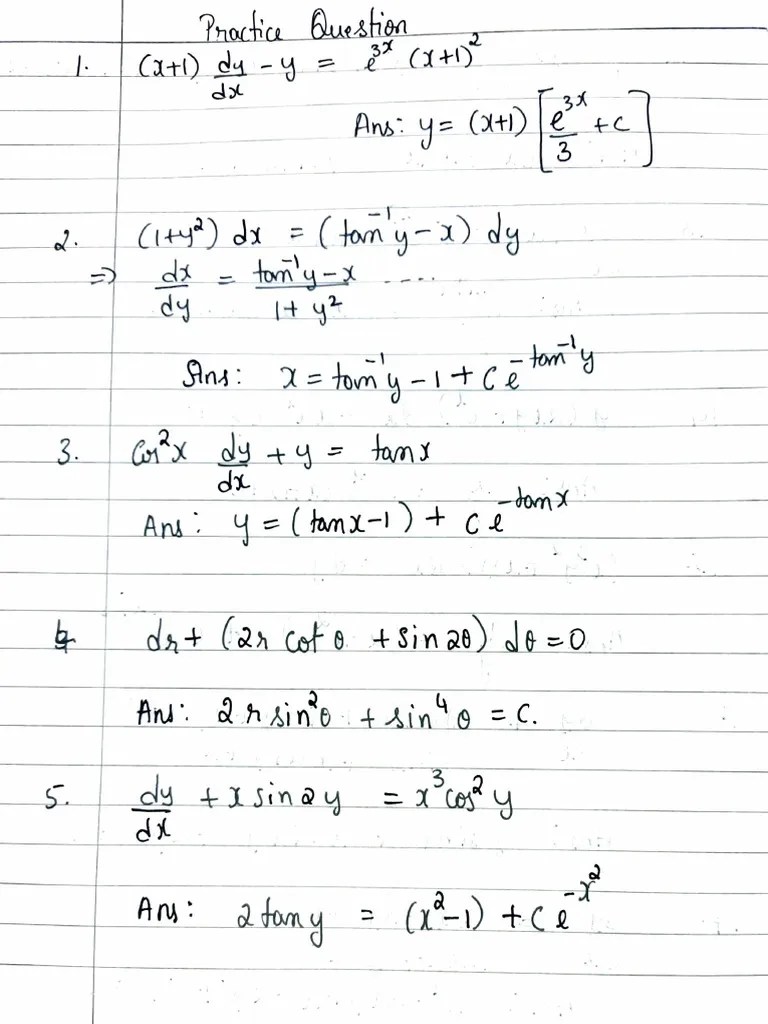 Practice Question
1. (x+1) dy/dx - y = e^3x (x+1)^2
Ans: y = (x+1) [e^3x/3 + c]
2. (1+y^2) dx = (tan^-1 y - x) dy
=> dx/dy = tan^-1 y - x / 1 + y^2 ....
Ans: x = tan^-1 y - 1 + C e^-tan^-1 y
3. Cos^2 x dy/dx + y = tan x
Ans: y = (tan x - 1) + C e^-tan x
4 dr + (2r cot θ + sin 2θ) dθ = 0
Ans: 2 r sin^2 θ + sin^4 θ = C.
5. dy/dx + x sin 2y = x^3 cos^2 y
Ans: 2 tan y = (x^2 - 1) + C e^-x^2